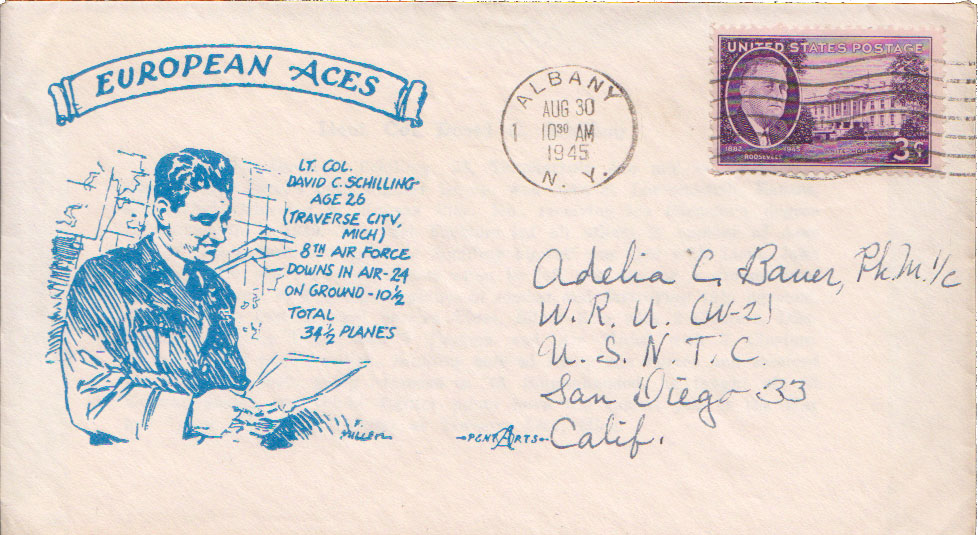 EUROPEAN ACES
LT. COL.
DAVID C. SCHILLING
AGE 26
(TRAVERSE CITY,
MICH)
8TH AIR FORCE
DOWNS IN AIR-24
ON GROUND-10½
TOTAL
34½ PLANES
F. MILLER
ALBANY
AUG 30
1 10 30 AM
1945
N. Y.
UNITED STATES POSTAGE
1882 1945
ROOSEVELT
3¢
Adelia C. Bauer, Ph.M. 1/c
W. R. U. (W-2)
U. S. N. T. C.
San Diego 33
Calif.
PENT ARTS